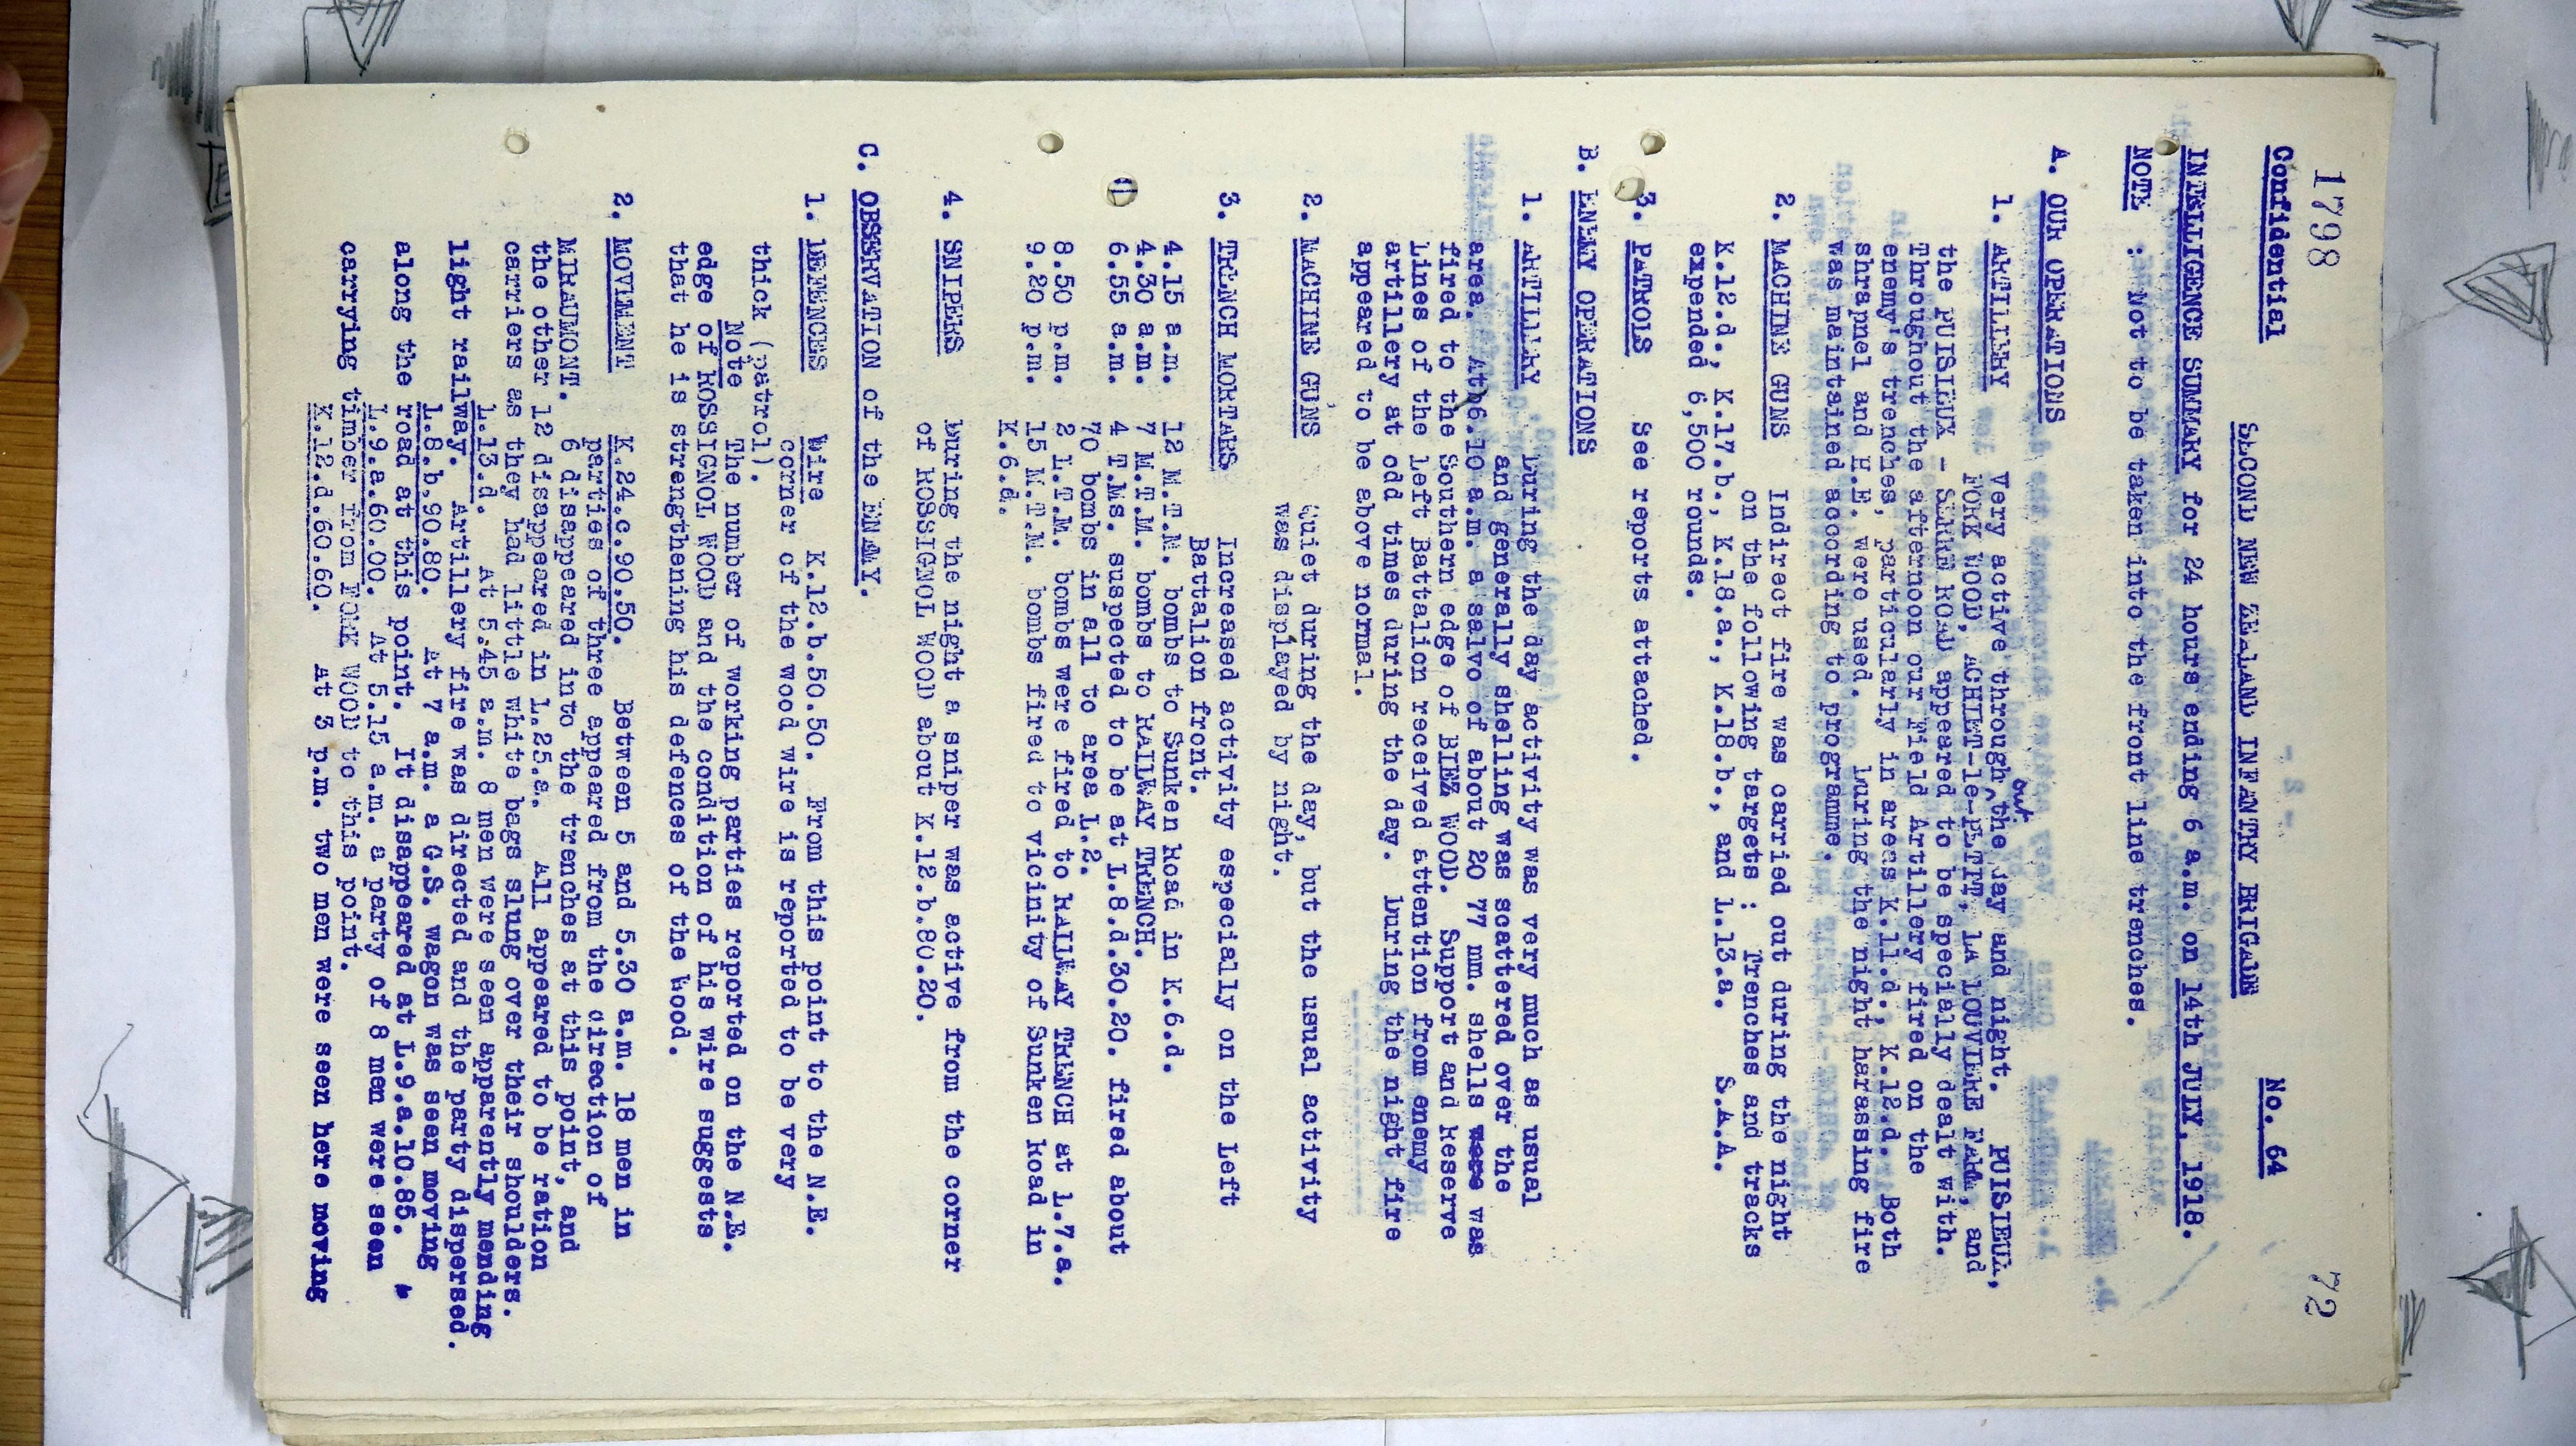 1798
72
Confidential
No. 64
SECOND NEW ZEALAND INFANTRY BRIGADE
INTELLIGENCE SUMMARY for 24 hours ending 6 a.m. on 14th JULY, 1918.
NOTE : Not to be taken into the front line trenches.
A. OUR OPERATIONS
1. ARTILLERY Very active through out the day and night. PUISIEUX,
FORK WOOD, ACHIET-le-PETIT, LA LOUVIERE FARM, and
the PUISIEUX - SERRE ROAD appeared to be specially dealt with.
Throughout the afternoon our Field Artillery fired on the
enemy's trenches, particularly in areas K.11.d., K.12.d. Both
shrapnel and H.E. were used. During the night harassing fire
was maintained according to programme.
2. MACHINE GUNS Indirect fire was carried out during the night
on the following targets : Trenches and tracks
K.12.d., K.17.b., K.18.a., K.18.b., and L.13.a. S.A.A.
expended 6,500 rounds.
3. PATROLS See reports attached.
B. ENEMY OPERATIONS
1. ARTILLERY During the day activity was very much as usual
and generally shelling was scattered over the
area. At 6.10 a.m. a salvo of about 20 77 mm. shells was
fired to the Southern edge of BIEZ WOOD. Support and Reserve
Lines of the Left Battalion received attention from enemy
artillery at odd times during the day. During the night fire
appeared to be above normal.
2. MACHINE GUNS Quiet during the day, but the usual activity
was displayed by night.
3. TRENCH MORTARS Increased activity especially on the Left
Battalion front.
4.15 a.m. 12 M.T.M. bombs to Sunken Road in K.6.d.
4.30 a.m. 7 M.T.M. bombs to RAILWAY TRENCH.
6.55 a.m. 4 T.Ms. suspected to be at L.8.d.30.20. fired about
70 bombs in all to area L.2.
8.50 p.m. 2 L.T.M. bombs were fired to RAILWAY TRENCH at L.7.a.
9.20 p.m. 15 M.T.M. bombs fired to vicinity of Sunken Road in
K.6.d.
4. SNIPERS During the night a sniper was active from the corner
of ROSSIGNOL WOOD about K.12.b.80.20.
C. OBSERVATION of the ENEMY.
1. DEFENCES Wire K.12.b.50.50. From this point to the N.E.
corner of the wood wire is reported to be very
thick (patrol).
Note The number of working parties reported on the N.E.
edge of ROSSIGNOL WOOD and the condition of his wire suggests
that he is strengthening his defences of the Wood.
2. MOVEMENT K.24.c.90.50. Between 5 and 5.30 a.m. 18 men in
parties of three appeared from the direction of
MIRAUMONT. 6 disappeared into the trenches at this point, and
the other 12 disappeared in L.25.a. All appeared to be ration
carriers as they had little white bags slung over their shoulders.
L.13.d. At 5.45 a.m. 8 men were seen apparently mending
light railway. Artillery fire was directed and the party dispersed.
L.8.b.90.80. At 7 a.m. a G.S. wagon was seen moving
along the road at this point. It disappeared at L.9.a.10.85.
L.9.a.60.00. At 5.15 a.m. a party of 8 men were seen
carrying timber from FORK WOOD to this point.
K.12.d.60.60. At 3 p.m. two men were seen here moving